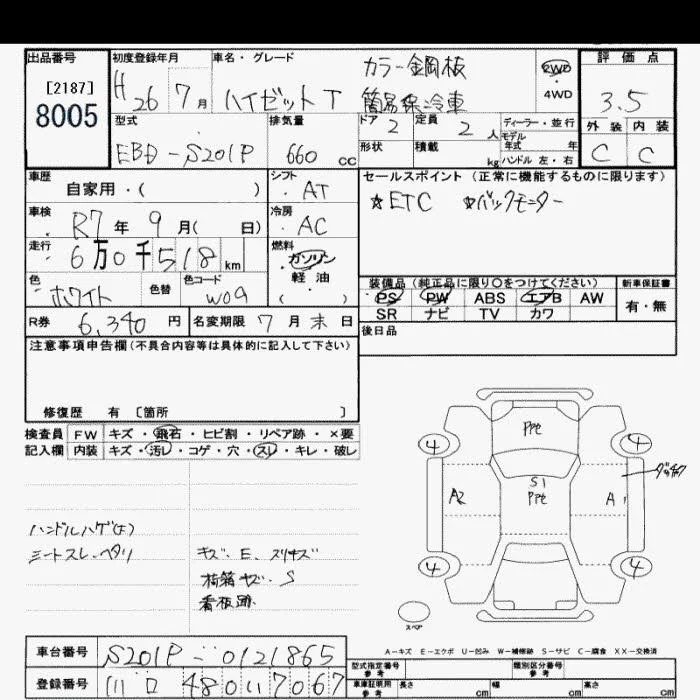 出品番号 初度登録年月 車名・グレード カラー鋼板 2WD 評価点
[2187] H26 7月 ハイゼット T 簡易保冷車 ・4WD 3.5
8005 型式 排気量 ドア 2 定員 2人 ディーラー・並行 外装 内装
モデル
EBD-S201P 660 cc 形状 積載 kg 年式 年 C C
ハンドル 左・右
車歴 自家用・( ) シフト ・AT セールスポイント (正常に機能するものに限ります)
車検 R7年 9月( 日) 冷房 ・AC ☆ETC ☆バックモニター
走行 6万0千518km 燃料 ガソリン
・軽油
色 ・ホワイト 色替 色コード W09 ( )
装備品 (純正品に限り○をつけてください) 新車保証書
PS PW ABS エアB AW 有・無
SR ナビ TV カワ
R券 6,340円 名変期限 7月末日
後日品
注意事項申告欄 (不具合内容等は具体的に記入して下さい)
修復歴 有 [箇所 ]
検査員 FW キズ・飛石・ヒビ割・リペア跡・×要
記入欄 内装 キズ・汚レ・コゲ・穴・スレ・キレ・破レ
PPt
4 4
S1
A2 PPt A1
4 4
スペア
キズ、E、スリキズ
S
看板跡
A-キズ E-エクボ U-凹み W-補修跡 S-サビ C-腐食 XX-交換済
車台番号 S201P-0121865
型式指定番号 参考 類別区分番号 参考
登録番号
車庫証明用 参考 長さ cm 幅 cm 高さ cm